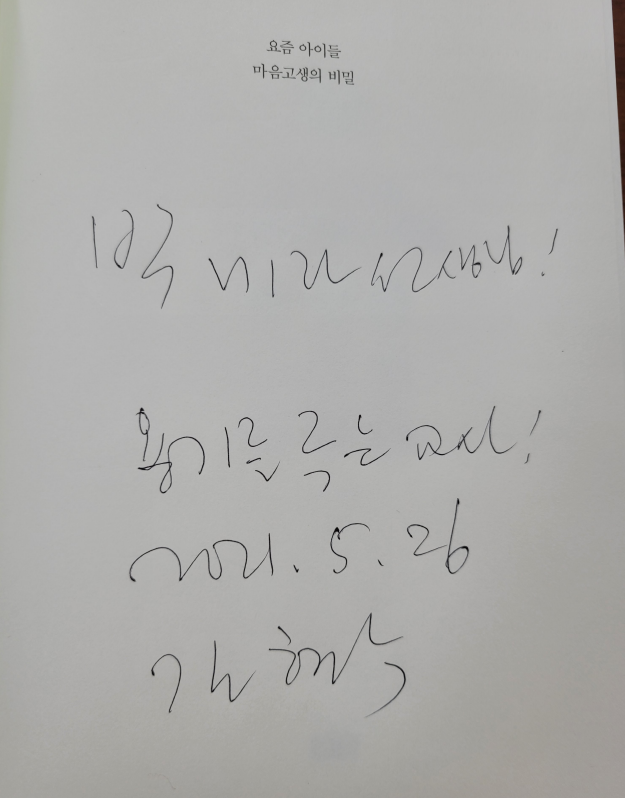 요즘 아이들
마음고생의 비밀
박미라 선생님!
용기를 주는 교사!
2021. 5. 26
김현수